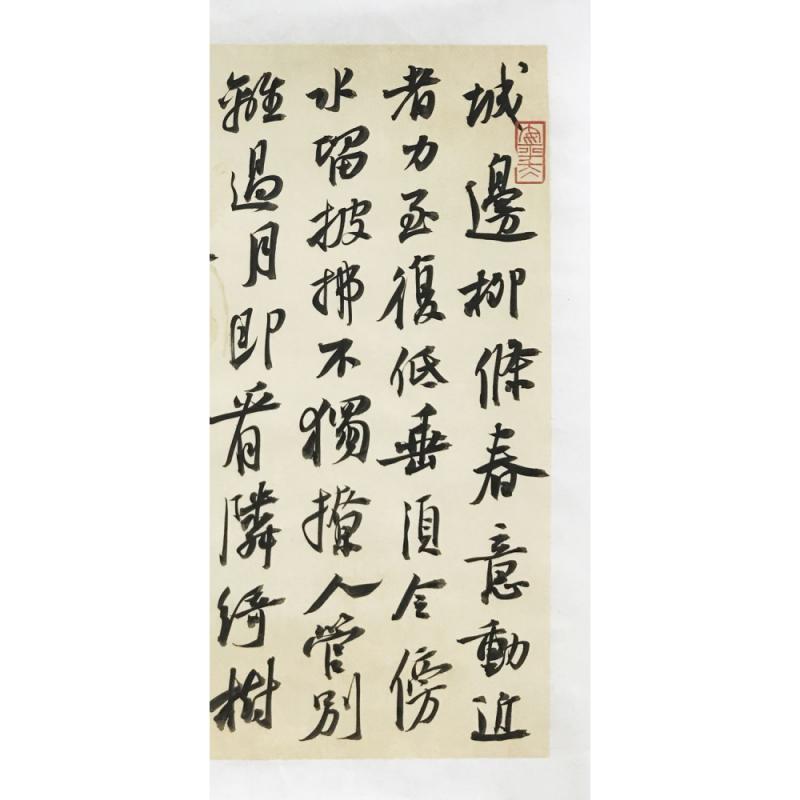 城邊柳條春意動近
者力至復低垂須令傍
水留披拂不獨撩人管別
離過月即看隣綺樹